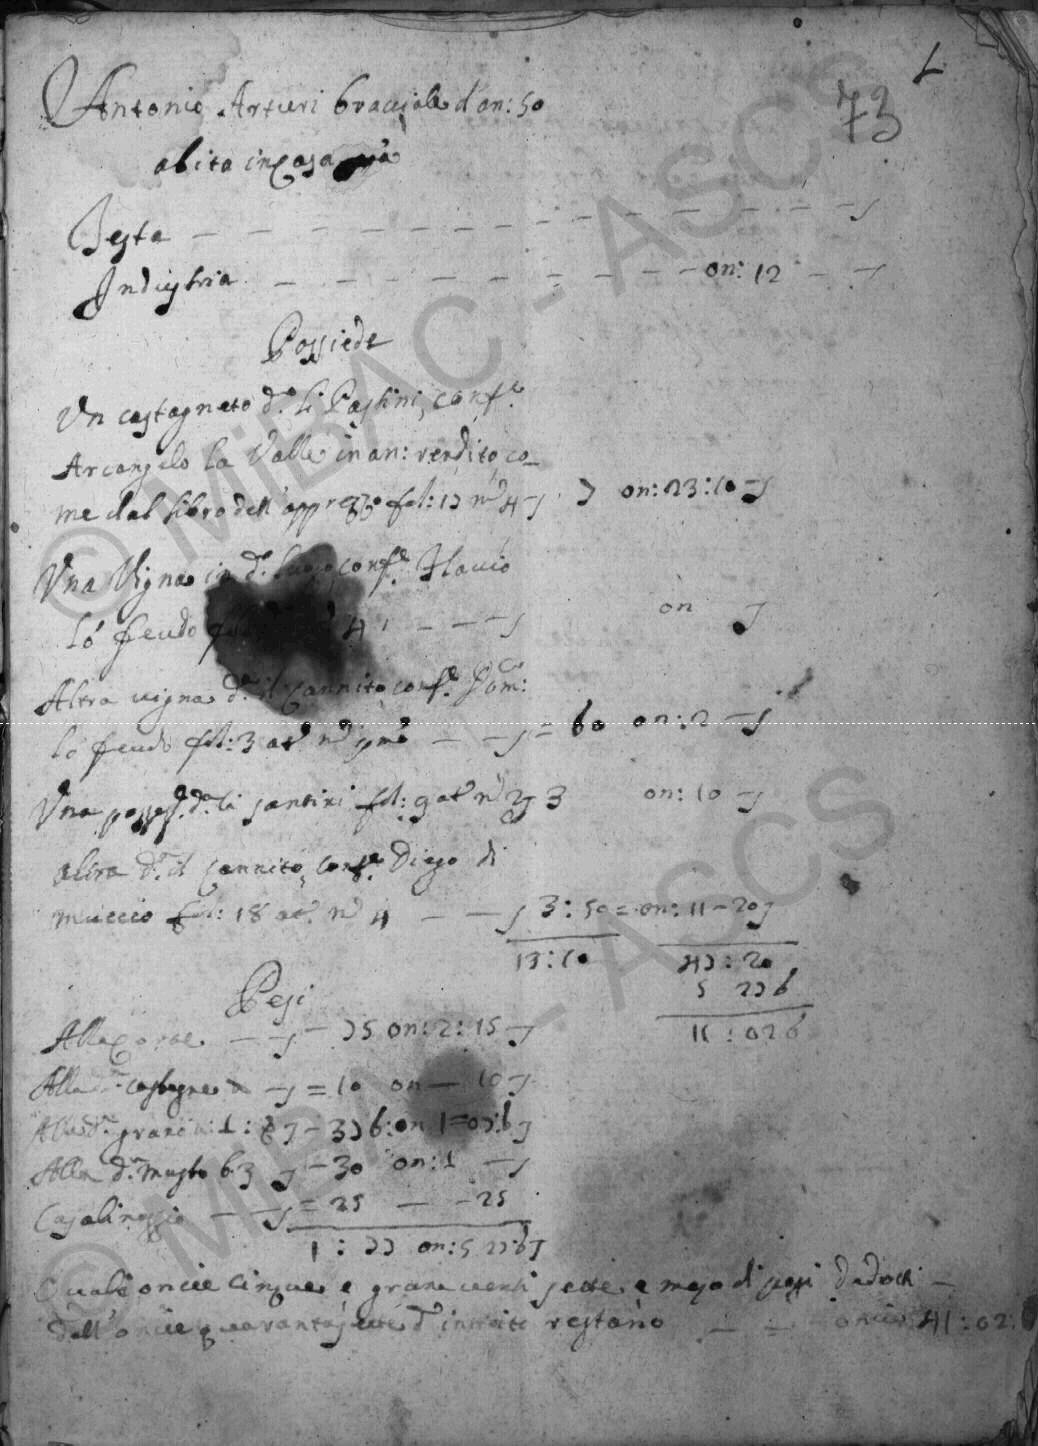 L
73
Antonio Arturi bracciale d'an: 50
abita in Casa
Testa — — — — — — — — — — — —
Industria — — — — — — — — on: 12 — —
Possiede
Un castagneto d.o li Pastini, conf.e
Arcangelo la Valle in an: rendito, co_
me dal libro dell'apprezzo fol: 17 n.o 4 — 7 on: 23:10 —
Una Vigna in d.o luogo conf.e Flavio
lo feudo 4 — — — on
Altra vigna d.a il Cannito conf.e Dom:co
lo feudo fol: 3 at.o n.o p.mo — — = 60 on: 2 —
Una possess.e d.a li santini fol: 9 at.o n.o 23 on: 10 —
altra d.a il Cannito, conf.e Diego di
muccio fol: 18 at.o n.o 4 — — 3:50 = on: 11 - 20
13:10 47:20
5 27 6
11:026
Pesi
Alla Corte — — 75 on: 2:15 —
Alla d.a castagne — = 10 on — 10 —
Alla d.a grano 1: — 37 6: on 1 = 07:6
Alla d.a musto 6 3 — 30 on: 1 —
Casalinaggio — — = 25 — - 25
1:77 on: 5 27:6
Quali oncie cinque e grana venti sette e mezo di pesi dedotti —
dall'oncie quarantasette d'introito restano — — oncie 41:02:6
© MiBAC - ASCS
© MiBAC - ASCS